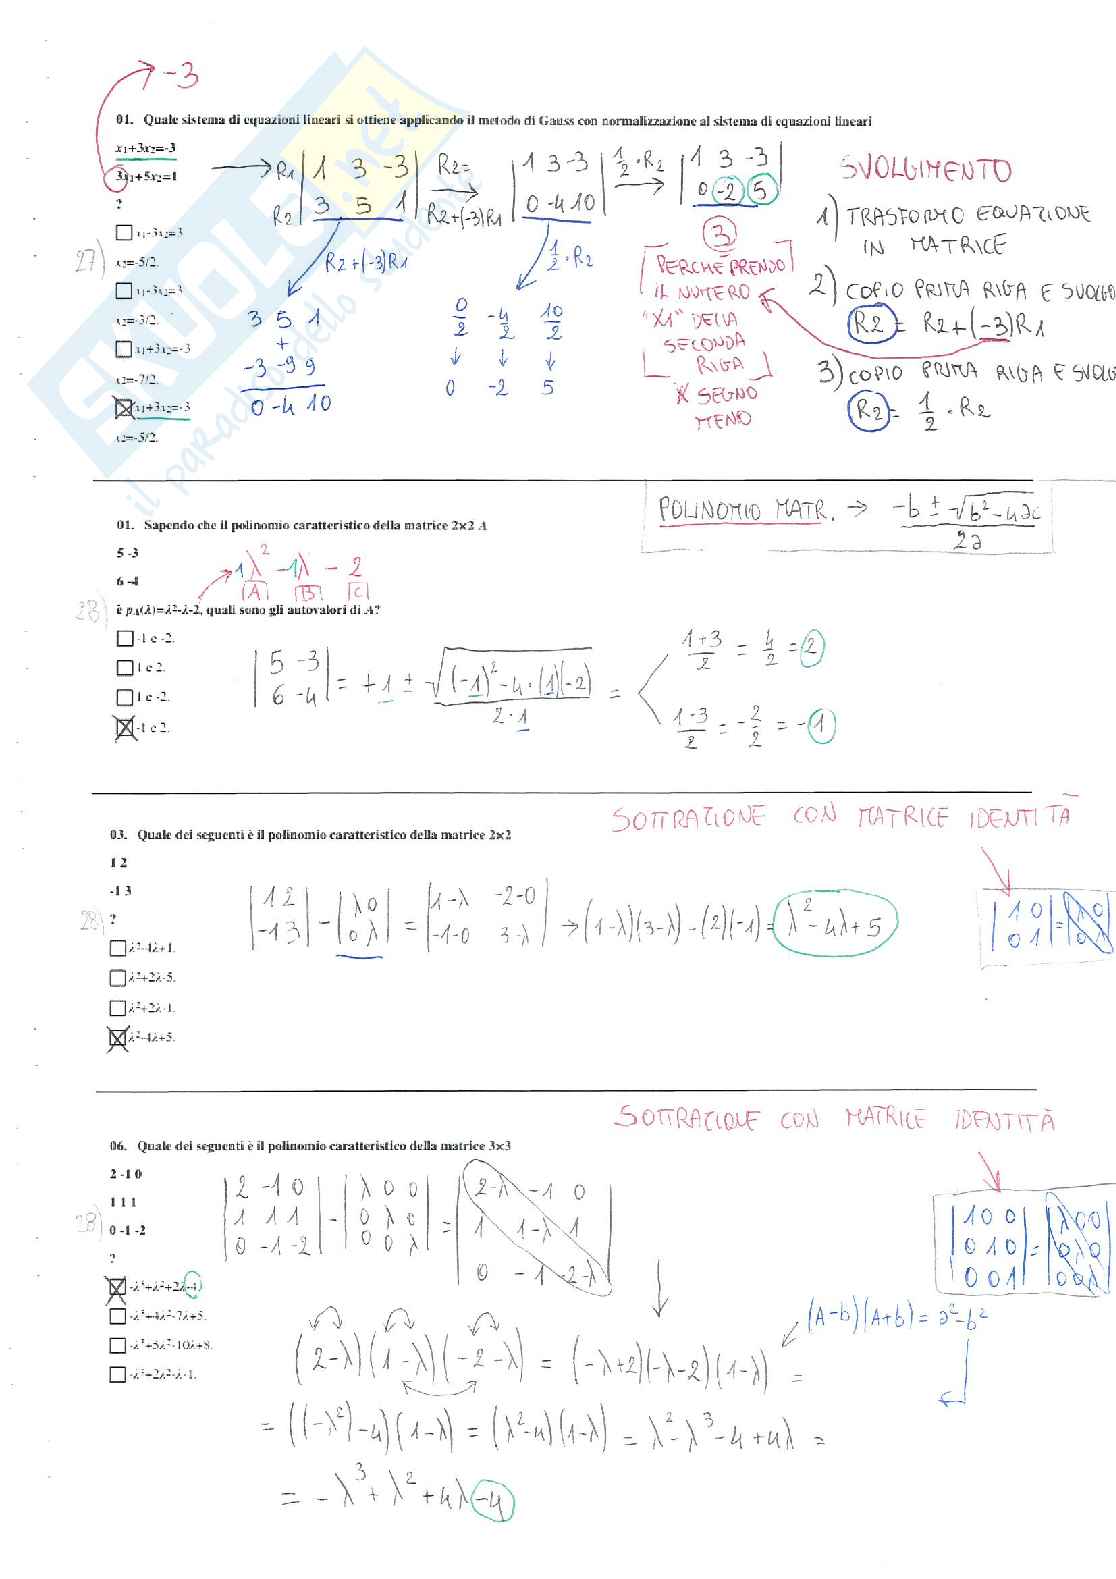 → -3
01. Quale sistema di equazioni lineari si ottiene applicando il metodo di Gauss con normalizzazione al sistema di equazioni lineari
x₁+3x₂=-3
3x₁+5x₂=1
?
x₁-3x₂=3
x₂=-5/2.
x₁-3x₂=3
x₂=-3/2.
x₁+3x₂=-3
x₂=-7/2.
x₁+3x₂=-3
x₂=-5/2.
27)
→ R1 | 1 3 -3 | R2= | 1 3 -3 | 1/2·R2 | 1 3 -3 |
R2 | 3 5 1 | R2+(-3)R1 | 0 -4 10 | → | 0 -2 5 |
R2+(-3)R1
1/2·R2
3 5 1
+
-3 -9 9
0 -4 10
0/2 -4/2 10/2
↓ ↓ ↓
0 -2 5
3
PERCHÈ PRENDO
IL NUMERO
"X1" DELLA
SECONDA
RIGA
X SEGNO
MENO
SVOLGIMENTO
1) TRASFORMO EQUAZIONE
IN MATRICE
2) COPIO PRIMA RIGA E SVOLGO
R2 = R2+(-3)R1
3) COPIO PRIMA RIGA E SVOLGO
R2 = 1/2 · R2
SKUOLA.net
il paradiso dello studente
POLINOMIO MATR. → -b ± √b²-4ac / 2a
01. Sapendo che il polinomio caratteristico della matrice 2×2 A
5 -3
6 -4
1λ² -1λ - 2
A B C
28)
è pA(λ)=λ²-λ-2, quali sono gli autovalori di A?
-1 e -2.
1 e 2.
1 e -2.
-1 e 2.
| 5 -3 |
| 6 -4 | = +1 ± √(-1)²-4·(1)(-2) / 2·1 =
1+3/2 = 4/2 = 2
1-3/2 = -2/2 = -1
SOTTRAZIONE CON MATRICE IDENTITÀ
03. Quale dei seguenti è il polinomio caratteristico della matrice 2×2
1 2
-1 3
28)
?
λ²-4λ+1.
λ²+2λ-5.
λ²+2λ-1.
λ²-4λ+5.
| 1 2 | - | λ 0 | = | 1-λ -2-0 |
| -1 3 | | 0 λ | | -1-0 3-λ | → (1-λ)(3-λ)-(2)(-1)= λ²-4λ+5
| 1 0 | = | λ 0 |
| 0 1 | | 0 λ |
SOTTRAZIONE CON MATRICE IDENTITÀ
06. Quale dei seguenti è il polinomio caratteristico della matrice 3×3
2 -1 0
1 1 1
0 -1 -2
28)
?
-λ³+λ²+2λ-4.
-λ³+4λ²-7λ+5.
-λ³+5λ²-10λ+8.
-λ³+2λ²-λ-1.
| 2 -1 0 | | λ 0 0 | | 2-λ -1 0 |
| 1 1 1 | - | 0 λ 0 | = | 1 1-λ 1 |
| 0 -1 -2 | | 0 0 λ | | 0 -1 -2-λ |
| 1 0 0 | | λ 0 0 |
| 0 1 0 | = | 0 λ 0 |
| 0 0 1 | | 0 0 λ |
(A-b)(A+b)= a²-b²
(2-λ)(1-λ)(-2-λ) = (-λ+2)(-λ-2)(1-λ) =
= ((-λ²)-4)(1-λ) = (λ²-4)(1-λ) = λ²-λ³-4+4λ =
= -λ³+λ²+4λ-4